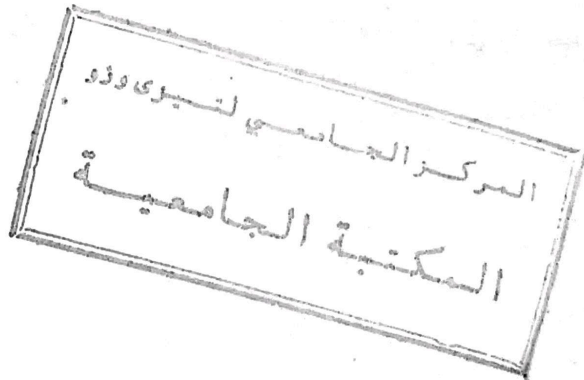 المركز الجامعي لتيزى وزو
المكتبة الجامعية